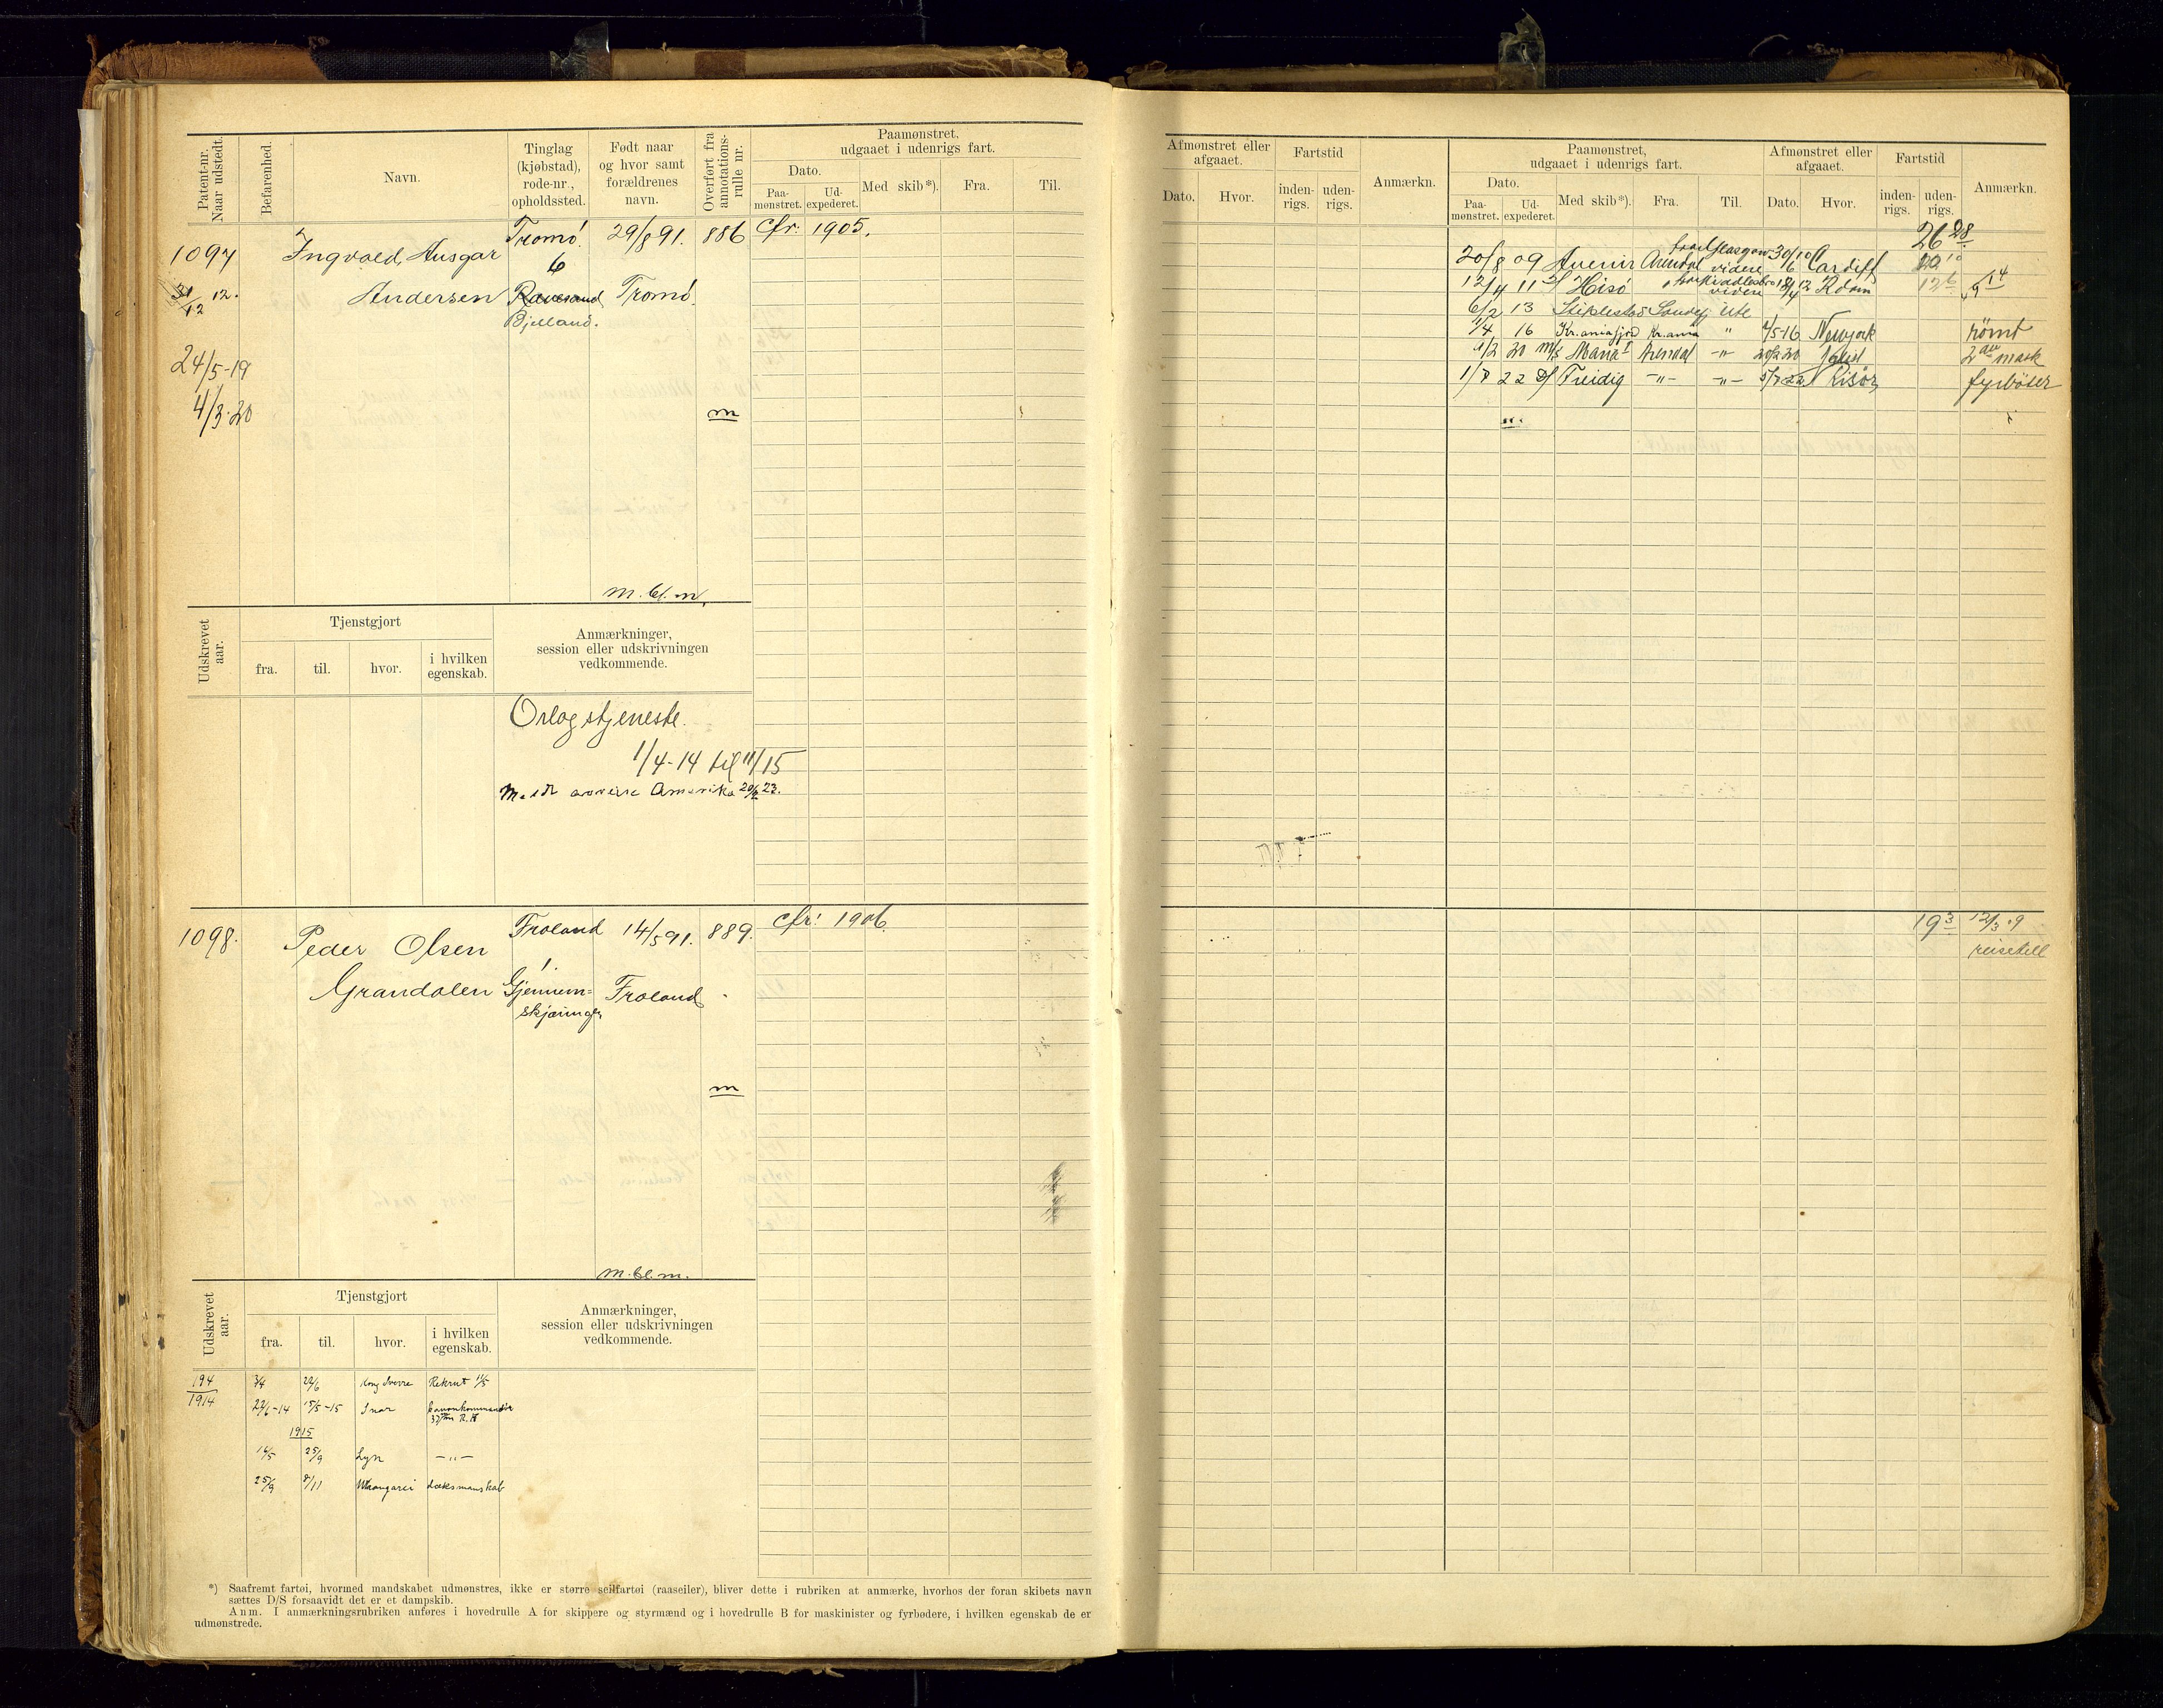 Patent-nr. Naar udstedt.
Befarenhed.
Navn.
Tinglag (kjøbstad), rode-nr., opholdssted.
Født naar og hvor samt forældrenes navn.
Overført fra annotations-rulle nr.
Paamønstret, udgaaet i udenrigs fart.
Dato.
Paa-mønstret.
Ud-expederet.
Med skib*).
Fra.
Til.
1097
31/12 12.
24/5-19
4/3-20
Ingvald, Ansgar
Andersen
Tromö.
6
Ravesand
Bjelland.
29/8 91.
Tromö.
886
cfr. 1905.
m
m. bl. m.
Udskrevet aar.
Tjenstgjort
fra.
til.
hvor.
i hvilken egenskab.
Anmærkninger, session eller udskrivningen vedkommende.
Orlogstjeneste.
1/4-14 til 11/15
Amerika
1098.
Peder Olsen
Grandalen
Froland
1
Gjennem-
skjæringen
14/5 91.
Froland
889.
cfr: 1906.
m
m. bl. m.
Udskrevet aar.
Tjenstgjort
fra.
til.
hvor.
i hvilken egenskab.
Anmærkninger, session eller udskrivningen vedkommende.
194/1914
3/4 22/6 Kong Sverre Rekrut 11/5
22/6-14 15/5-15 kanonkommandør
37mm R.K
1915
16/5 25/9 Lyn -"-
25/9 8/11 dæksmanskab
*) Saafremt fartøi, hvormed mandskabet udmønstres, ikke er større seilfartøi (raaseiler), bliver dette i rubriken at anmærke, hvorhos der foran skibets navn
sættes D/S forsaavidt det er et dampskib.
Anm. I anmærkningsrubriken anføres i hovedrulle A for skippere og styrmænd og i hovedrulle B for maskinister og fyrbødere, i hvilken egenskab de er
udmønstrede.
Afmønstret eller afgaaet.
Dato.
Hvor.
Fartstid
inden-rigs.
uden-rigs.
Anmærkn.
Paamønstret, udgaaet i udenrigs fart.
Dato.
Paa-mønstret.
Ud-expederet.
Med skib*).
Fra.
Til.
Afmønstret eller afgaaet.
Dato.
Hvor.
Fartstid
inden-rigs.
uden-rigs.
Anmærkn.
26 28
20/8 09 Avenir Arendal Glasgow videre 30/10 Cardiff
12/4 11 Hisö videre Rdam
6/2 13 Stiklestad Sandefj Ute
1/4 16 Kr.aniafjord Kr.ania " 4/5-16 Newyork römt
20 m/s Maria Arendal -"- 20 mask
1/8 22 D/ Freidig -"- -"- Risör fyrböter
19 3 12/3 09